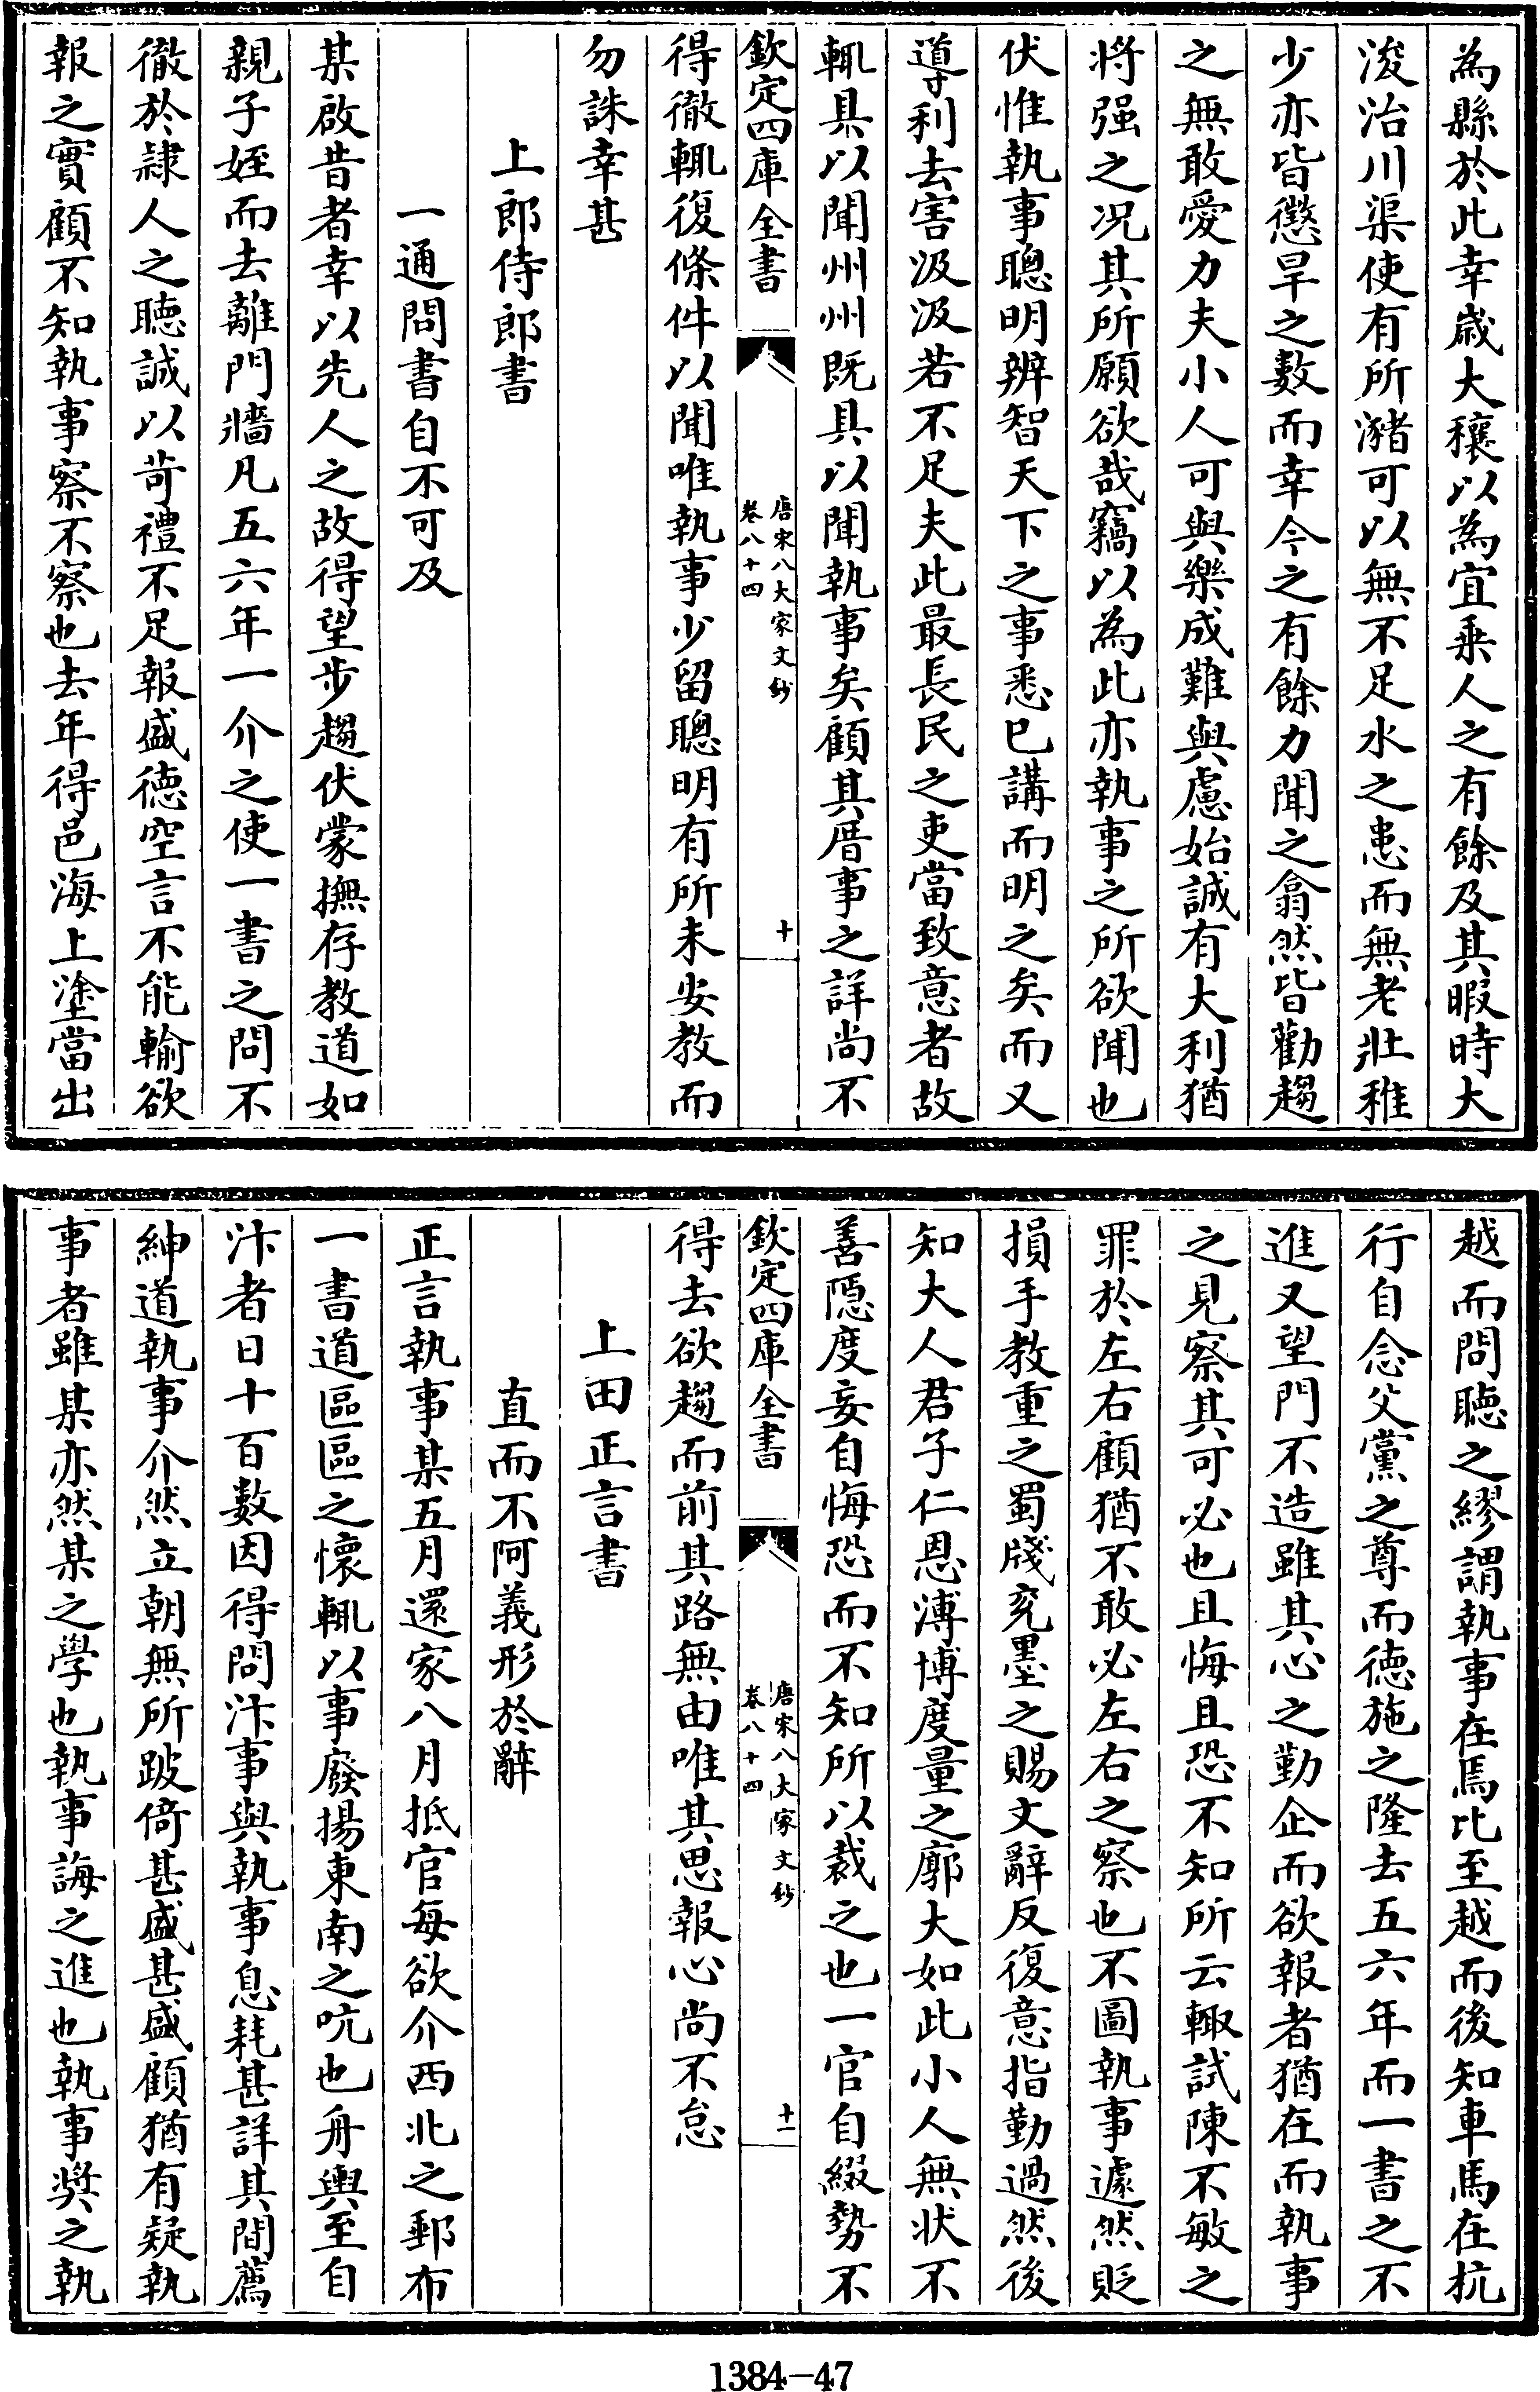 為縣於此幸歲大穰以為宜乗人之有餘及其暇時大
浚治川渠使有所瀦可以無不足水之患而無老壯稚
少亦皆懲旱之數而幸今之有餘力聞之翕然皆勸趨
之無敢愛力夫小人可與樂成難與慮始誠有大利猶
将强之况其所願欲哉竊以為此亦執事之所欲聞也
伏惟執事聰明辨智天下之事悉已講而明之矣而又
道利去害汲汲若不足夫此最長民之吏當致意者故
輒具以聞州州既具以聞執事矣顧其厝事之詳尚不
欽定四庫全書
唐宋八大家文鈔
卷八十四
十
得徹輒復條件以聞唯執事少留聰明有所未安教而
勿誅幸甚
上郎侍郎書
一通問書自不可及
某啟昔者幸以先人之故得望步趨伏蒙撫存教道如
親子姪而去離門牆凡五六年一介之使一書之問不
徹於隷人之聴誠以苛禮不足報盛徳空言不能輸欲
報之實顧不知執事察不察也去年得邑海上塗當出
越而問聴之繆謂執事在焉比至越而後知車馬在杭
行自念父黨之尊而徳施之隆去五六年而一書之不
進又望門不造雖其心之勤企而欲報者猶在而執事
之見察其可必也且悔且恐不知所云輙試陳不敏之
罪於左右顧猶不敢必左右之察也不圖執事遽然貶
損手教重之蜀牋兖墨之賜文辭反復意指勤過然後
知大人君子仁恩溥博度量之廓大如此小人無状不
善隱度妄自悔恐而不知所以裁之也一官自綴勢不
欽定四庫全書
唐宋八大家文鈔
卷八十四
十一
得去欲趨而前其路無由唯其思報心尚不怠
上田正言書
直而不阿義形於辭
正言執事某五月還家八月抵官每欲介西北之郵布
一書道區區之懷輒以事廢揚東南之吭也舟輿至自
汴者日十百數因得問汴事與執事息耗甚詳其間薦
紳道執事介然立朝無所跛倚甚盛甚盛顧猶有疑執
事者雖某亦然某之學也執事誨之進也執事奬之執
1384-47